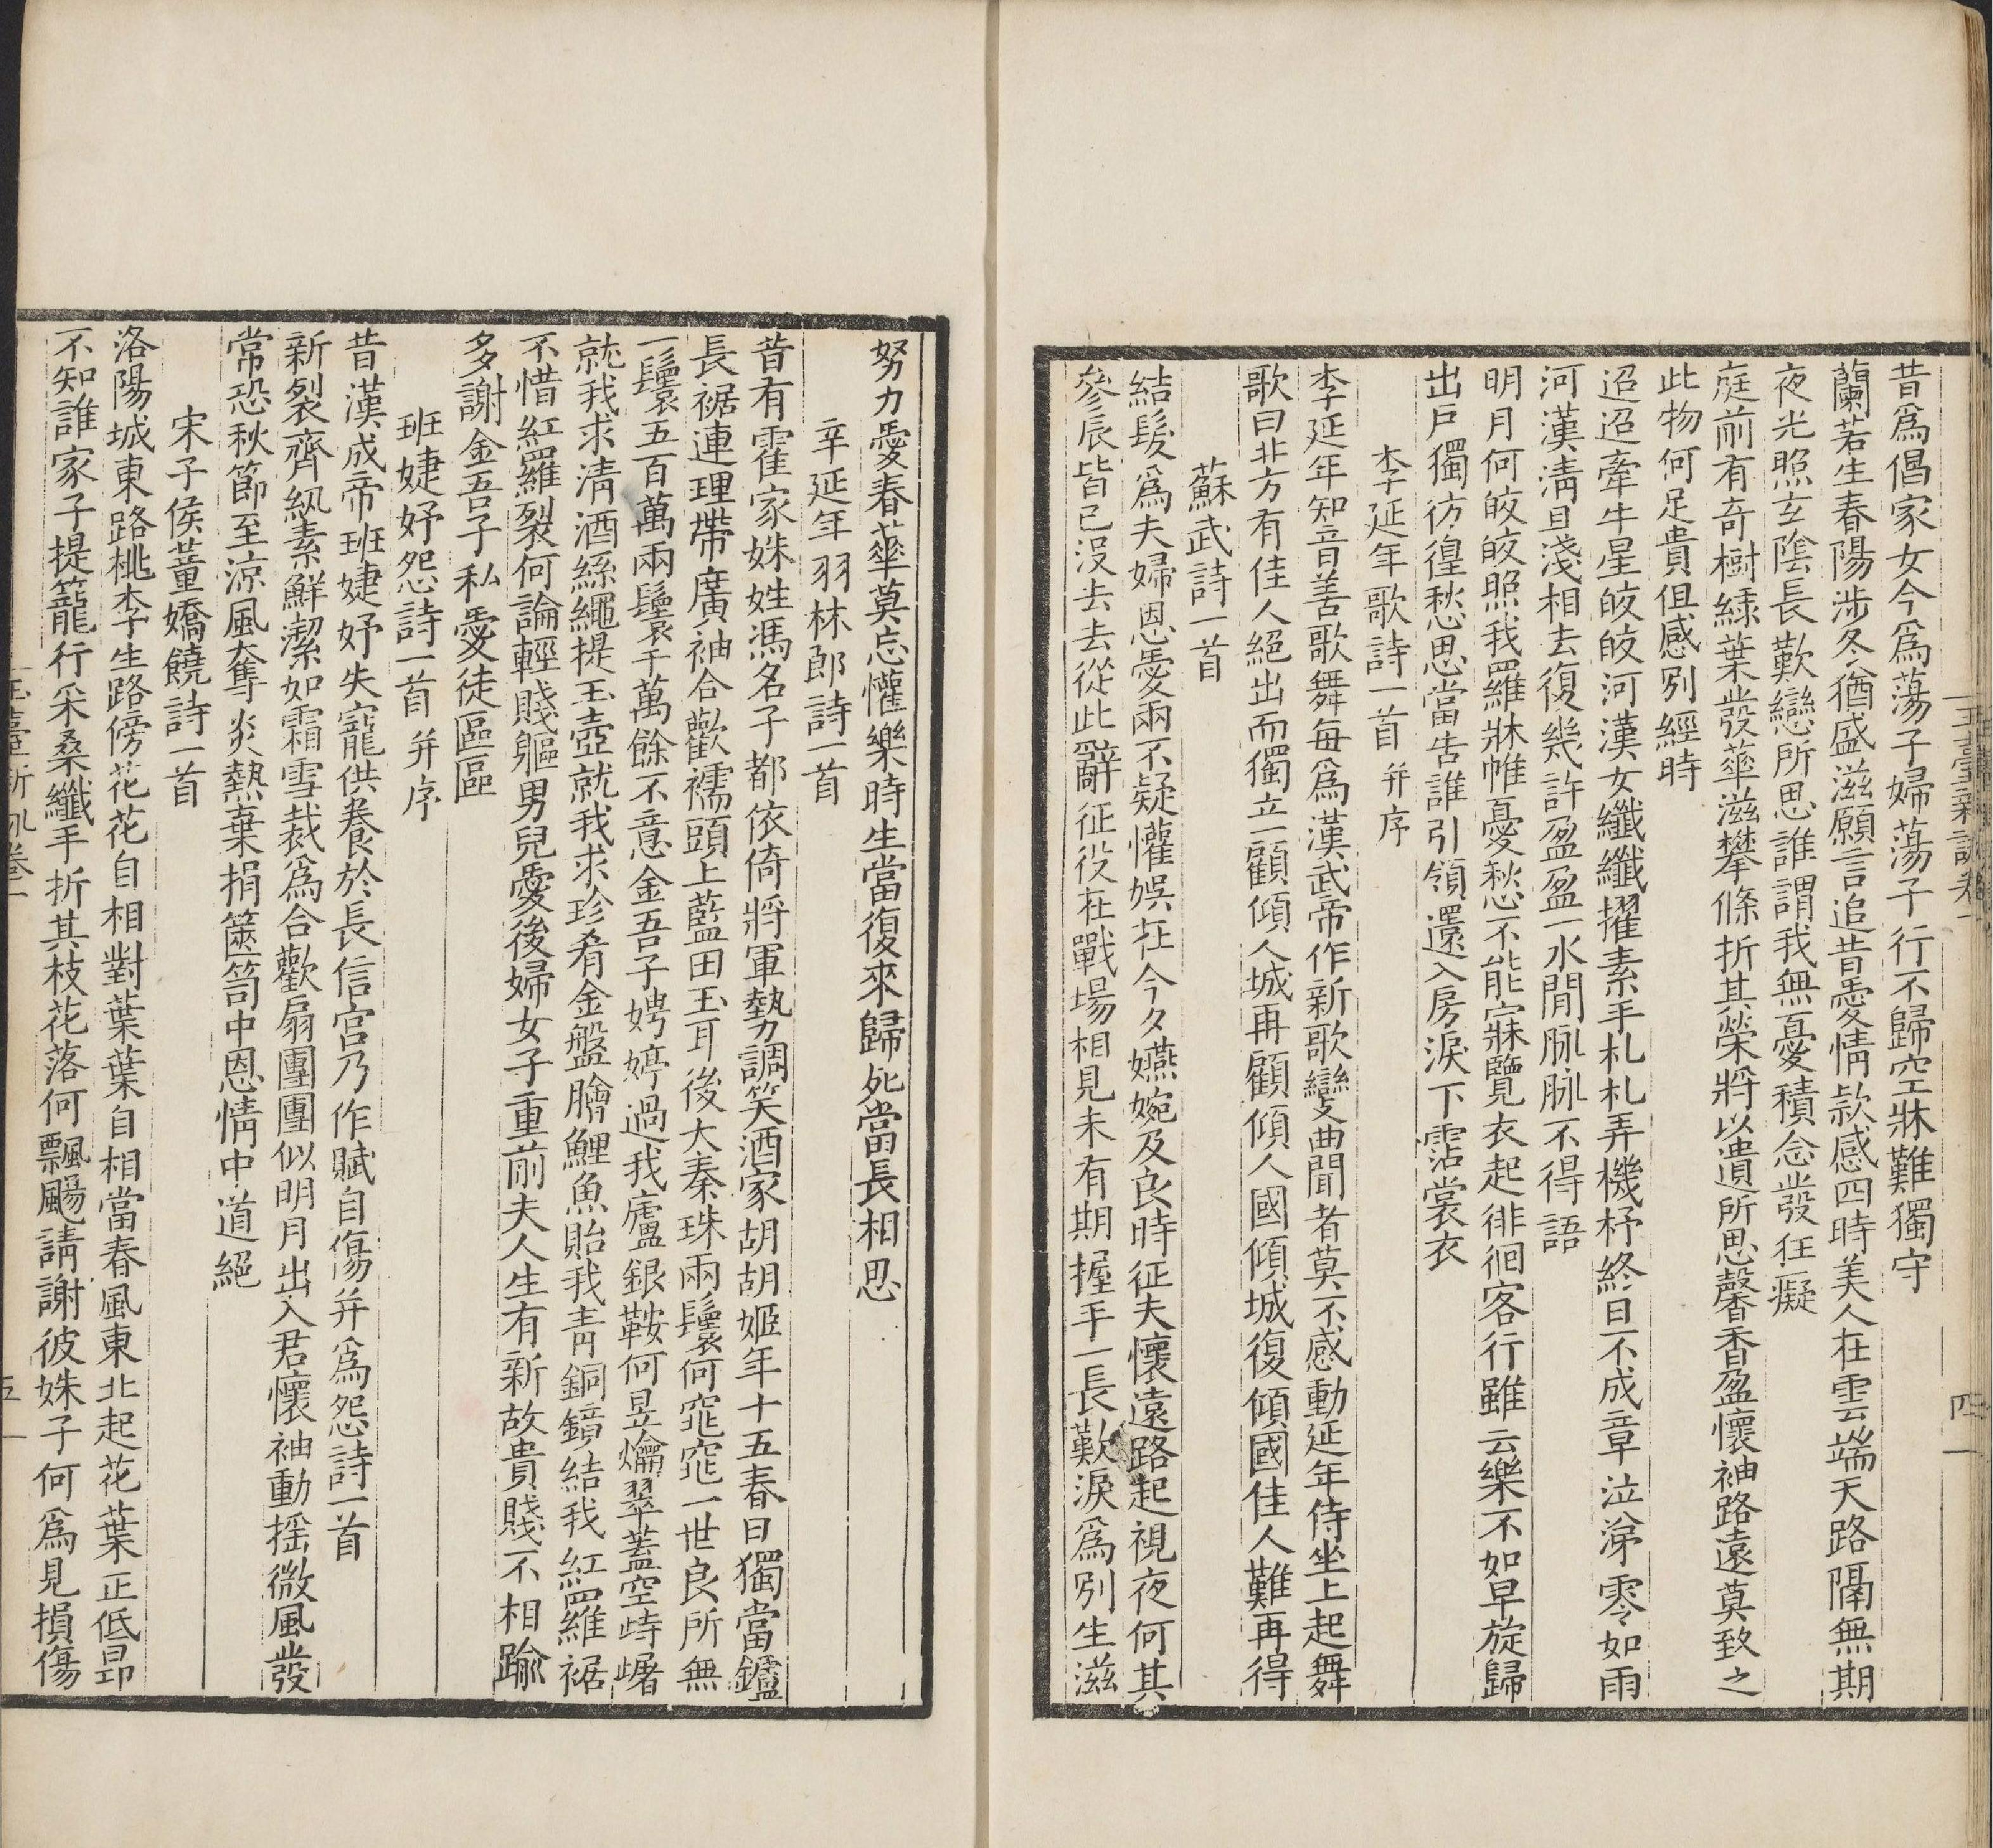 昔爲倡家女今爲蕩子婦蕩子行不歸空牀難獨守
蘭若生春陽涉冬猶盛滋願言追昔愛情款感四時美人在雲端天路隔無期
夜光照玄陰長歎戀所思誰謂我無憂積念發狂癡
庭前有奇樹綠葉發華滋攀條折其榮將以遺所思馨香盈懷袖路遠莫致之
此物何足貴但感別經時
迢迢牽牛星皎皎河漢女纖纖擢素手札札弄機杼終日不成章泣涕零如雨
河漢清且淺相去復幾許盈盈一水間脉脉不得語
明月何皎皎照我羅牀帷憂愁不能寐覽衣起徘徊客行雖云樂不如早旋歸
出戶獨彷徨愁思當告誰引領還入房淚下霑裳衣
李延年歌詩一首 并序
李延年知音善歌舞每爲漢武帝作新歌變曲聞者莫不感動延年侍坐上起舞
歌曰北方有佳人絕出而獨立一顧傾人城再顧傾人國傾城復傾國佳人難再得
蘇武詩一首
結髮爲夫婦恩愛兩不疑懽娛在今夕嬿婉及良時征夫懷遠路起視夜何其
參辰皆已沒去去從此辭征役在戰場相見未有期握手一長歎淚爲別生滋
玉臺新詠卷一
四
努力愛春華莫忘懽樂時生當復來歸死當長相思
辛延年羽林郎詩一首
昔有霍家姝姓馮名子都依倚將軍勢調笑酒家胡胡姬年十五春日獨當鑪
長裾連理帶廣袖合歡襦頭上藍田玉耳後大秦珠兩鬟何窕窕一世良所無
一鬟五百萬兩鬟千萬餘不意金吾子娉婷過我廬銀鞍何昱爚翠蓋空峙𡺽
就我求清酒絲繩提玉壺就我求珍肴金盤膾鯉魚貽我青銅鏡結我紅羅裾
不惜紅羅裂何論輕賤軀男兒愛後婦女子重前夫人生有新故貴賤不相踰
多謝金吾子私愛徒區區
班婕妤怨詩一首 并序
昔漢成帝班婕妤失寵供養於長信宮乃作賦自傷并爲怨詩一首
新裂齊紈素鮮潔如霜雪裁爲合歡扇團團似明月出入君懷袖動搖微風發
常恐秋節至涼風奪炎熱棄捐篋笥中恩情中道絕
宋子侯董嬌饒詩一首
洛陽城東路桃李生路傍花花自相對葉葉自相當春風東北起花葉正低昻
不知誰家子提籠行采桑纖手折其枝花落何飄颺請謝彼姝子何爲見損傷
玉臺新詠卷一
五